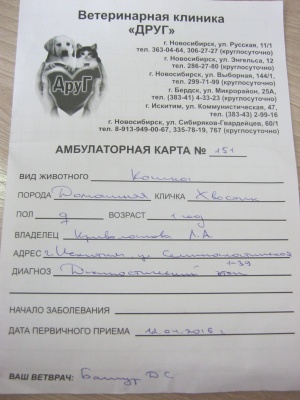 Ветеринарная клиника
«ДРУГ»
г. Новосибирск, ул. Русская, 11/1
тел. 363-04-64, 306-27-27 (круглосуточно)
г. Новосибирск, ул. Энгельса, 12
тел. 286-27-80 (круглосуточно)
г. Новосибирск, ул. Выборная, 144/1,
тел. 299-71-99 (круглосуточно)
г. Бердск, ул. Микрорайон, 25А,
тел. (383-41) 4-33-23 (круглосуточно)
г. Искитим, ул. Коммунистическая, 47,
тел. (383-43) 2-99-16
г. Новосибирск, ул. Сибиряков-Гвардейцев, 60/1
тел. 8-913-949-00-67, 335-78-19, 767 (круглосуточно)
ДруГ
АМБУЛАТОРНАЯ КАРТА № 151
ВИД ЖИВОТНОГО Кошка
ПОРОДА Домашняя КЛИЧКА Хвостик
ПОЛ ВОЗРАСТ 1 год
ВЛАДЕЛЕЦ Л.А.
АДРЕС г. Искитим, ул.
1-39
ДИАГНОЗ Диагностический этап
НАЧАЛО ЗАБОЛЕВАНИЯ
ДАТА ПЕРВИЧНОГО ПРИЕМА 12.04.2015 г.
ВАШ ВЕТВРАЧ: ДС